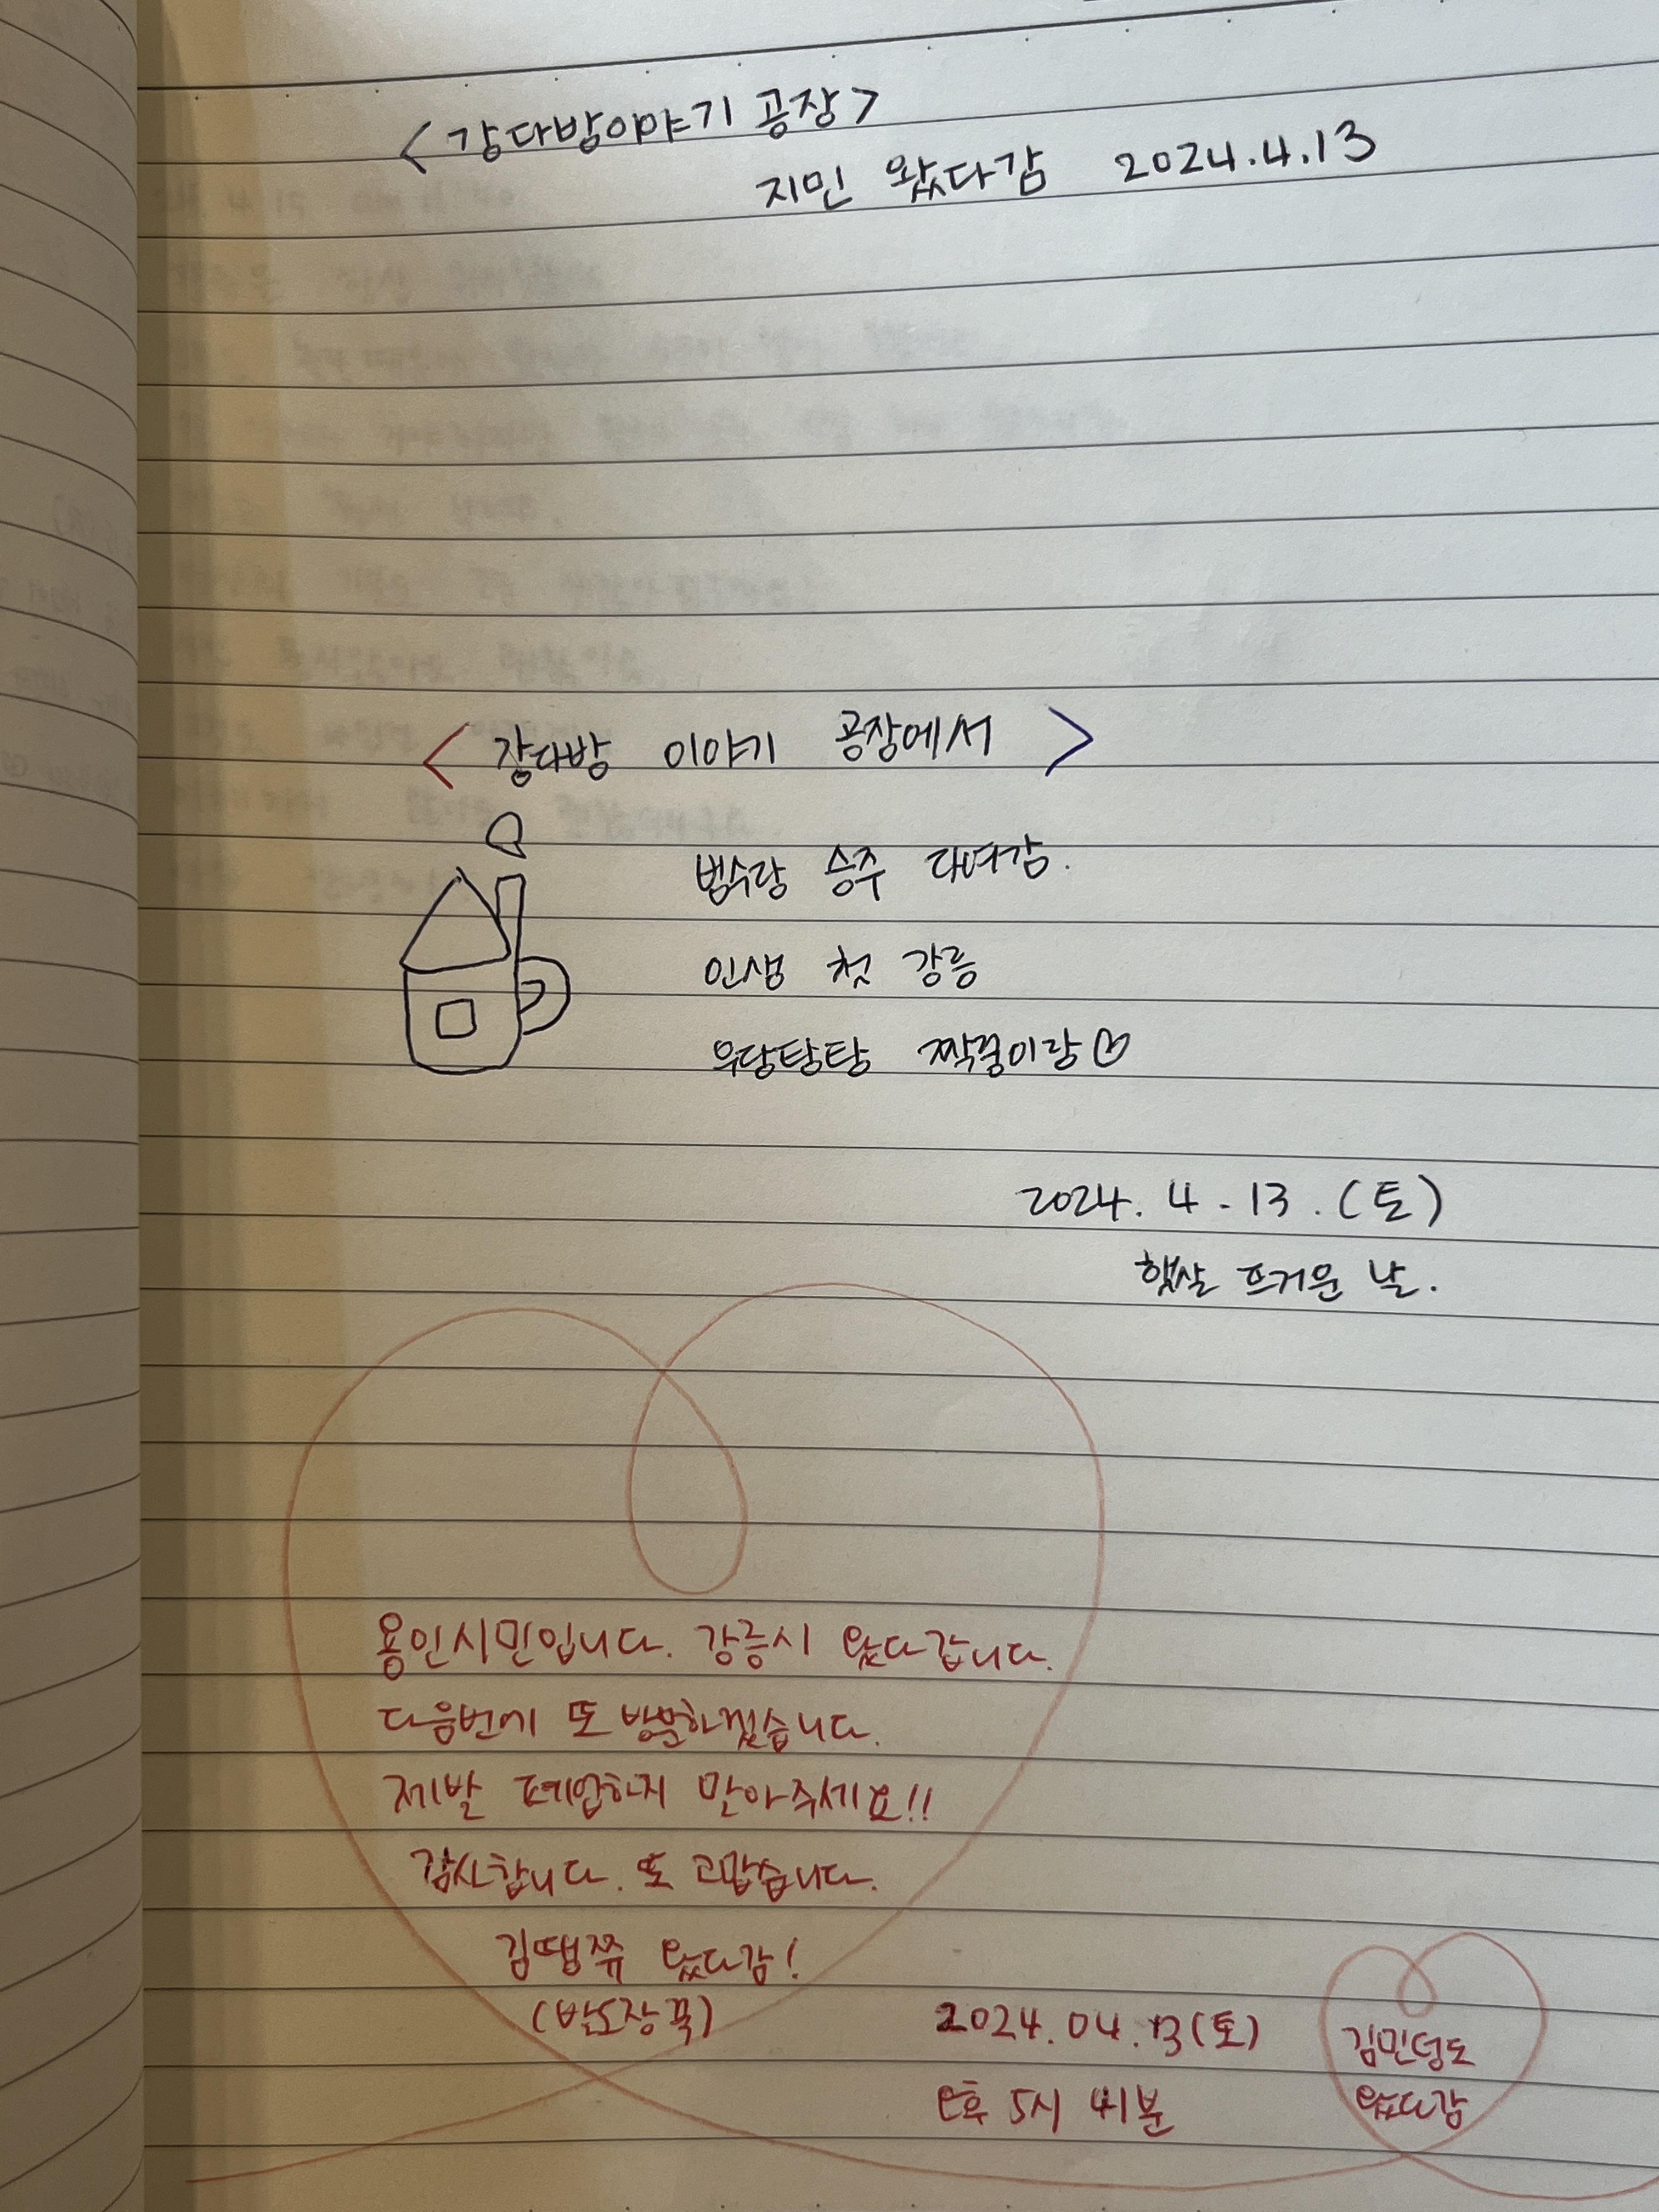 <강다방이야기 공장>
지민 왔다감 2024.4.13
< 강다방 이야기 공장에서 >
범수랑 승주 다녀감.
인생 첫 강릉
우당탕탕 짝꿍이랑♡
2024. 4. 13. (토)
햇살 뜨거운 날.
용인시민입니다. 강릉시 왔다갑니다.
다음번에 또 방문하겠습니다.
제발 폐업하지 말아주세요!!
감사합니다. 또 고맙습니다.
김땡쮸 왔다감!
(발도장 꾹)
2024.04.13(토)
오후 5시 41분
김민덩도
왔다감